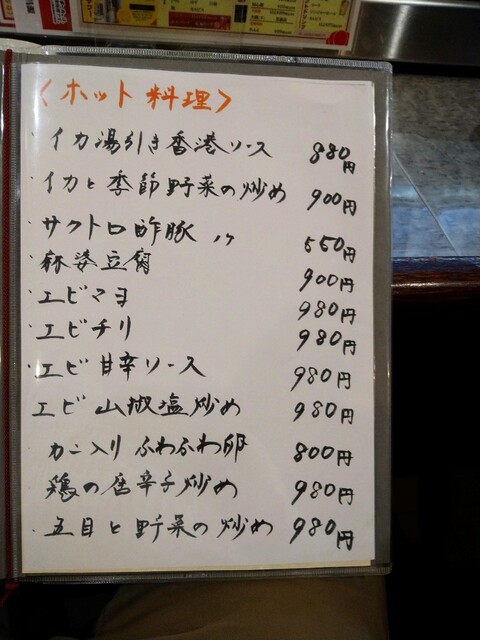 〈ホット料理〉
・イカ湯引き香港ソース 880円
・イカと季節野菜の炒め 900円
サクトロ酢豚 1ケ 550円
・麻婆豆腐 900円
・エビマヨ 980円
・エビチリ 980円
・エビ甘辛ソース 980円
エビ山椒塩炒め 980円
カニ入りふわふわ卵 800円
・鶏の唐辛子炒め 980円
・五目と野菜の炒め 980円